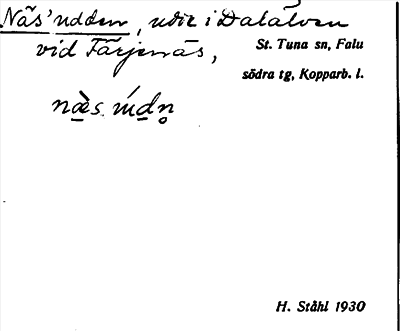 Näs'udden, udde i Dalälven
vid Färjenäs,
St. Tuna sn, Falu
södra tg, Kopparb. l.
H. Ståhl 1930